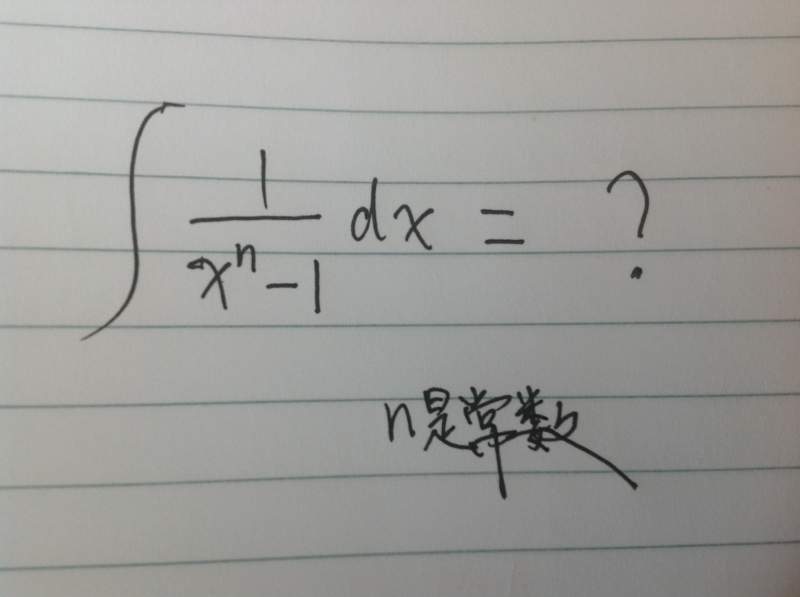 ∫ 1/(xⁿ-1) dx = ?
n是常数